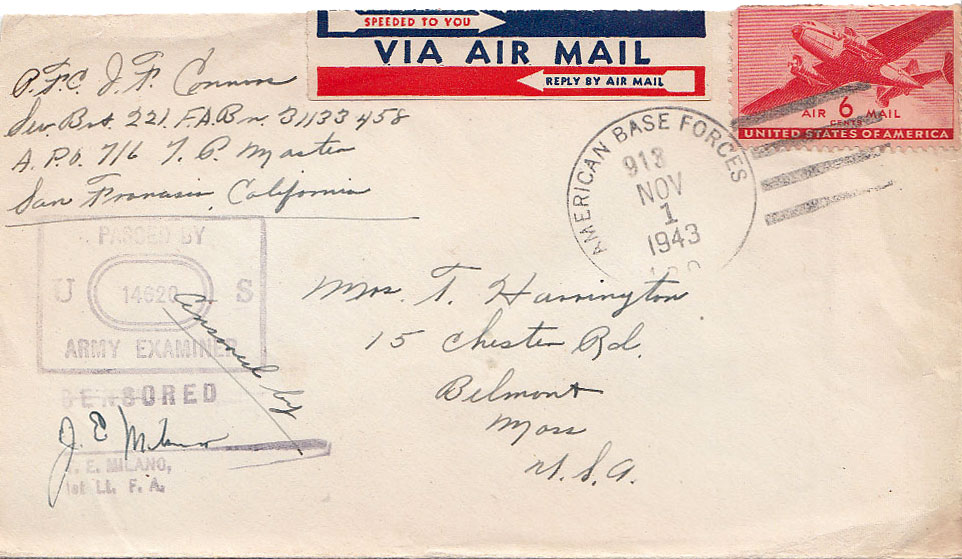 SPEEDED TO YOU
VIA AIR MAIL
REPLY BY AIR MAIL
AIR 6 MAIL
CENTS
UNITED STATES OF AMERICA
P.F.C. J. F. Connors
Ser. Bat. 221. F.A.Bn. 31133458
A. P. O. 716 % P. Master
San Francisco, California
AMERICAN BASE FORCES
913
NOV
1
1943
PASSED BY
U 14620 S
ARMY EXAMINER
CENSORED
Censored by
J. E. Milano
J. E. MILANO,
1st Lt. F. A.
Mrs. T. Harrington
15 Chester Rd.
Belmont
Mass
U.S.A.